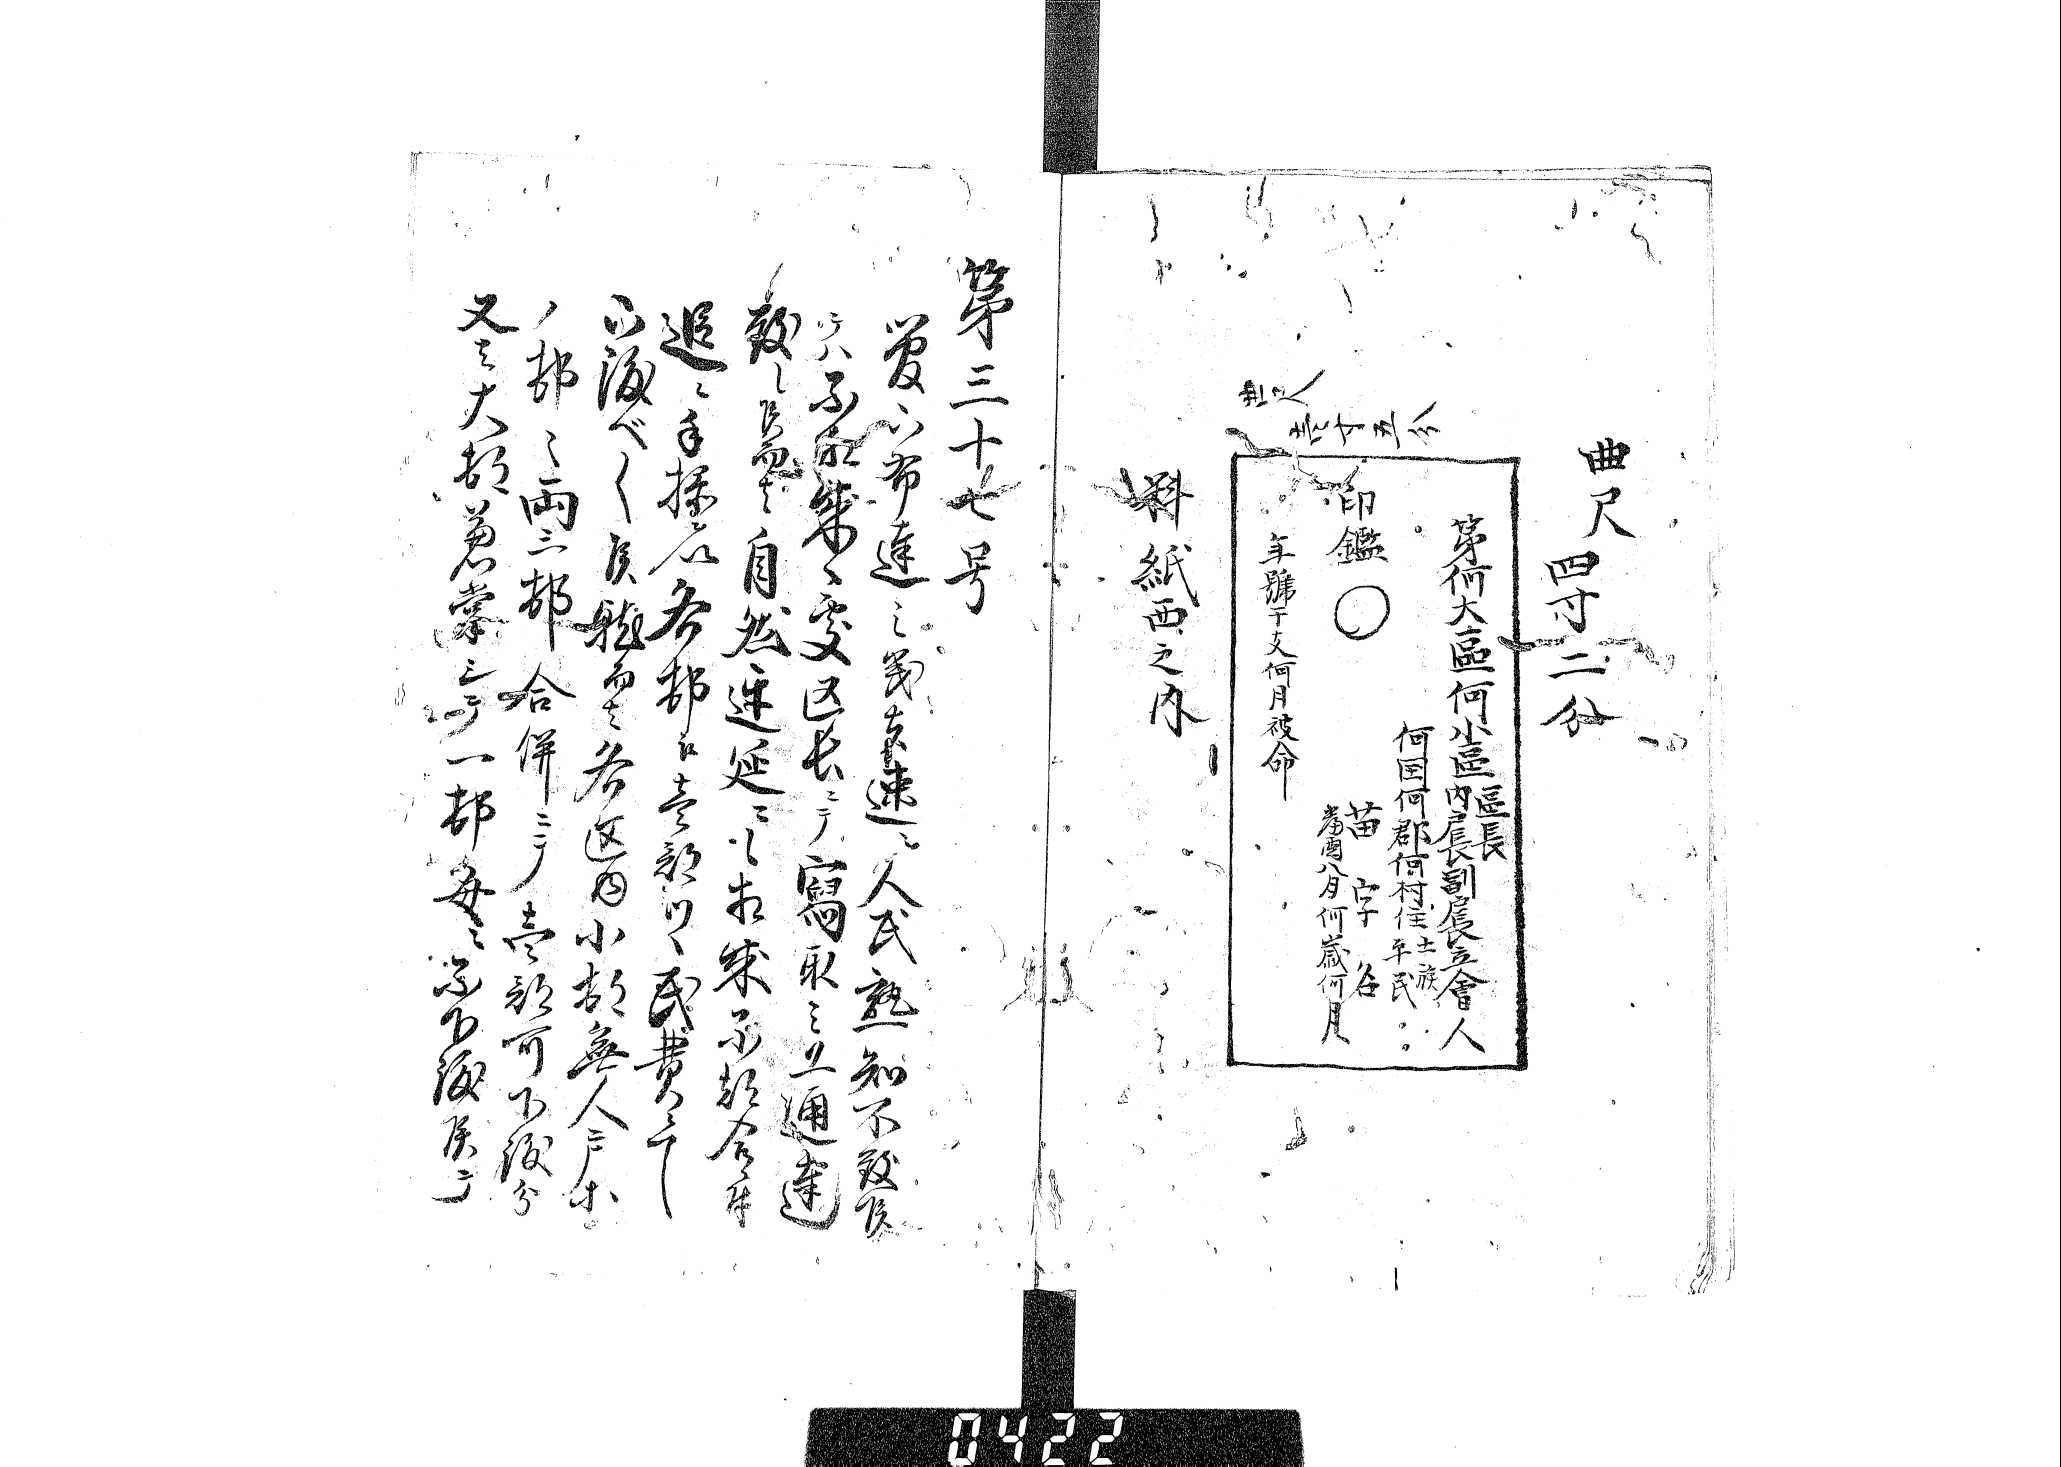 曲尺
四寸二分
曲尺
壱寸五分
區長
第何大區何小區内戸長副戸長立會人
何国何郡何村住士族
平民
苗字名
當酉八月何歳何月
印鑑
年號干支何月被命
料紙西之内
第三十七号
布達之義速ニ人民熟知不致候
而ハ不相成処区長ニテ寫取之上通達
致し候而者自然遅延ニも相成不都合ニ付
追々手操を以各邨江壱部ツヽ民費ニテ
下渡べく候就而者各区内小邨無人戸ホ
ノ邨々両三邨合併ニテ壱部可下渡分
又者大邨兼掌ニテ一邨毎ニ不下渡候テ
0422